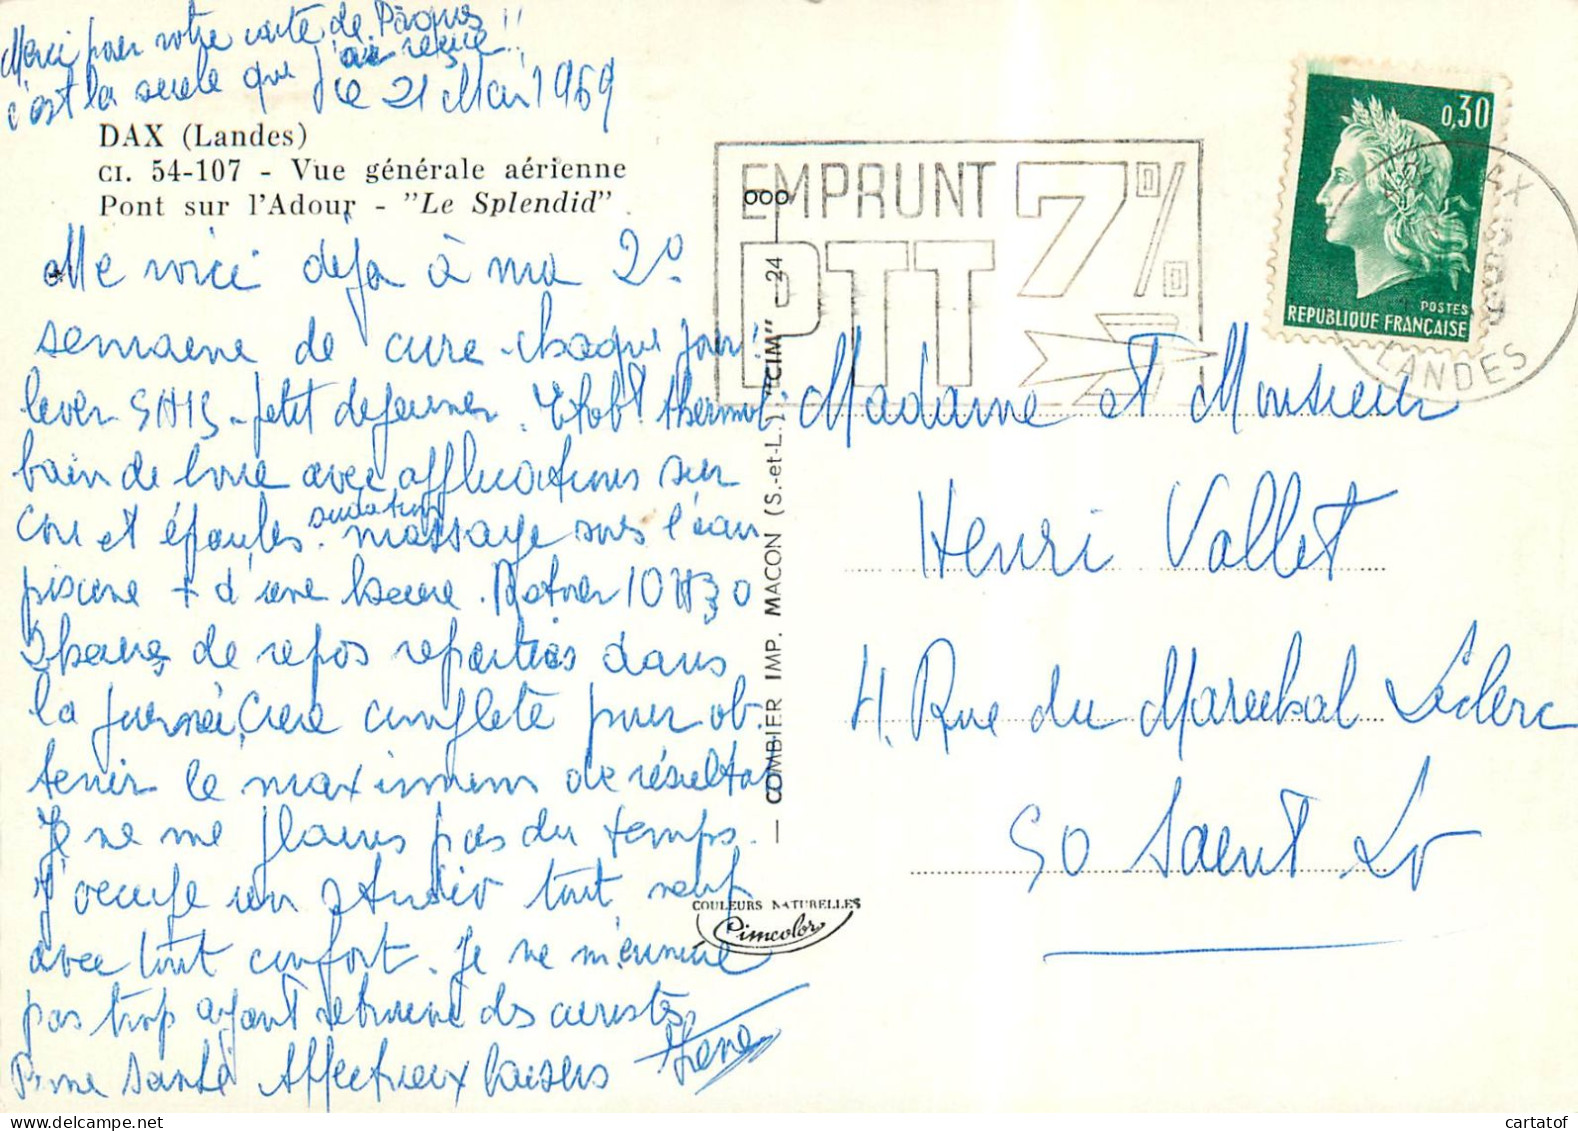 Merci pour votre carte de Pâques !!
c'est la seule que j'ai reçue
le 21 Mai 1969
DAX (Landes)
CI. 54-107 - Vue générale aérienne
Pont sur l'Adour - "Le Splendid"
Me voici déja à ma 2º
semaine de cure. chaque jour
lever 5H15 - petit dejeuner. Etabt thermal
bain de boue avec applications sur
cou et épaules. sudation massage sous l'eau
piscine + d'une heure. Retour 10H30
heures de repos reparties dans
la journée, Cure complète pour ob-
tenir le maximum de résultat
Je ne me plains pas du temps.
J'occupe un studio tout neuf
avec tout confort. Je ne m'ennuie
pas trop ayant retrouvé des curistes
Bonne Santé Affectueux baisers
EMPRUNT 7%
PTT
0,30
POSTES
REPUBLIQUE FRANÇAISE
DAX
LANDES
— COMBIER IMP. MACON (S.-et-L.) "CIM" 24
COULEURS NATURELLES
Cimcolor
Madame et Monsieur
Henri Vallet
4. Rue du Marechal Leclerc
50 Saint Lo
www.cartatof.com